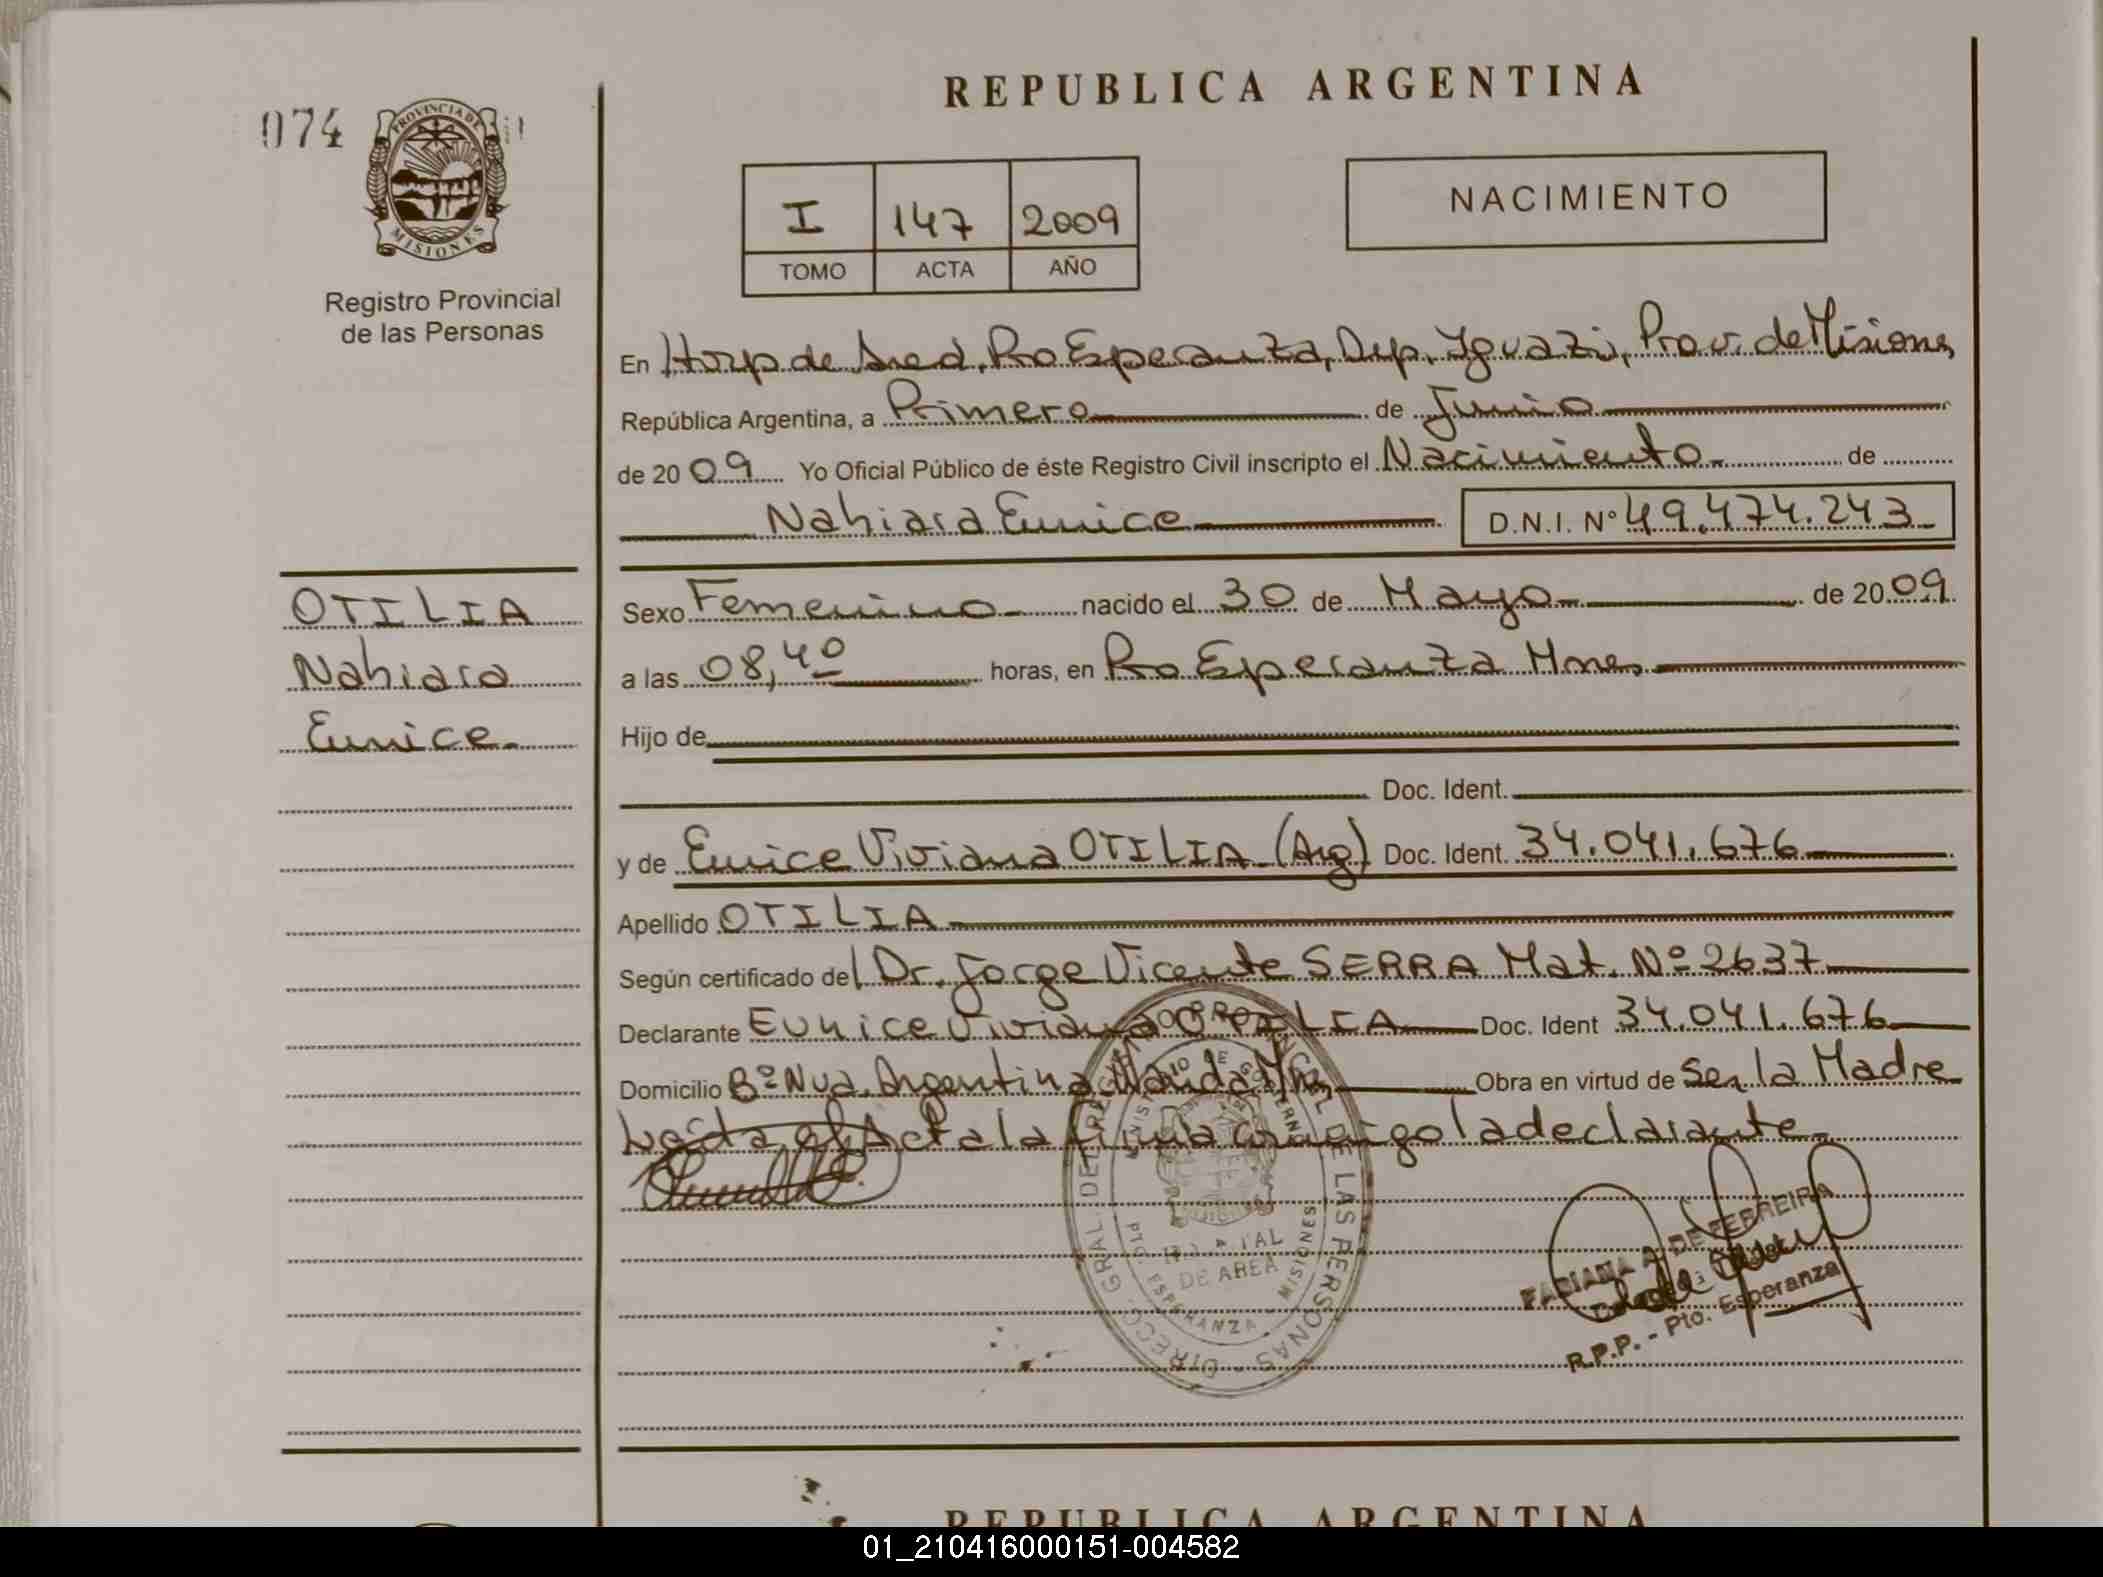 REPUBLICA ARGENTINA
074
PROVINCIA DE
MISIONES
Registro Provincial
de las Personas
I 147 2009
TOMO ACTA AÑO
NACIMIENTO
En Hosp de Area, Pto Esperanza, Dep. Iguazú, Prov. de Misiones
República Argentina, a Primero de Junio
de 2009 Yo Oficial Público de éste Registro Civil inscripto el Nacimiento de
Nahiara Eunice D.N.I. Nº 49.474.243
OTILIA
Nahiara
Eunice
Sexo Femenino nacido el 30 de Mayo de 2009
a las 08,40 horas, en Pto Esperanza Mnes
Hijo de
Doc. Ident.
y de Eunice Viviana OTILIA (Arg) Doc. Ident. 34.041.676
Apellido OTILIA
Según certificado del Dr. Jorge Vicente SERRA Mat. Nº 2637
Declarante Eunice Viviana OTILIA Doc. Ident 34.041.676
Domicilio Bº Nva. Argentina Wanda Mnes Obra en virtud de Ser la Madre
Leída el Acta la firma conmigo la declarante
DIRECC. GRAL. DEL REGISTRO PROVINCIAL DE LAS PERSONAS
MINISTERIO DE GOBIERNO
HOSPITAL
DE AREA
PTO. ESPERANZA - MISIONES
FABIANA A. DE FERREIRA
R.P.P. - Pto. Esperanza
REPUBLICA ARGENTINA
01_210416000151-004582